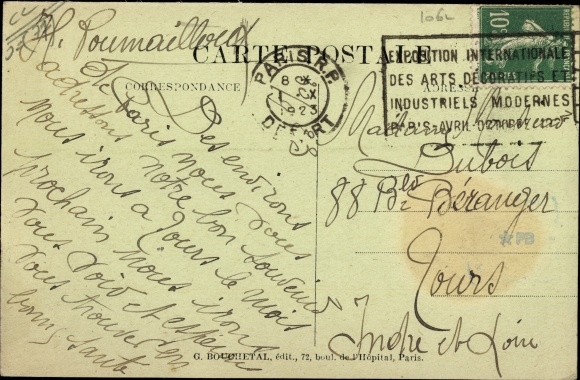 106L
P. Poumailloux
CARTE POSTALE
CORRESPONDANCE
ADRESSE
PARIS R.P.
8 IX
1923
DÉPART
10c
EXPOSITION INTERNATIONALE
DES ARTS DÉCORATIFS ET
INDUSTRIELS MODERNES
PARIS AVRIL-OCTOBRE
Des environs
de Paris nous vous
adressons notre bon souvenir
nous irons à Tours le mois
prochain nous irons
vous voir et espérons
vous trouver en
bonne santé
Madame
Dubois
88 Bis Béranger
Tours
Indre et Loire
G. BOUCHETAL, édit., 72, boul. de l'Hôpital, Paris.